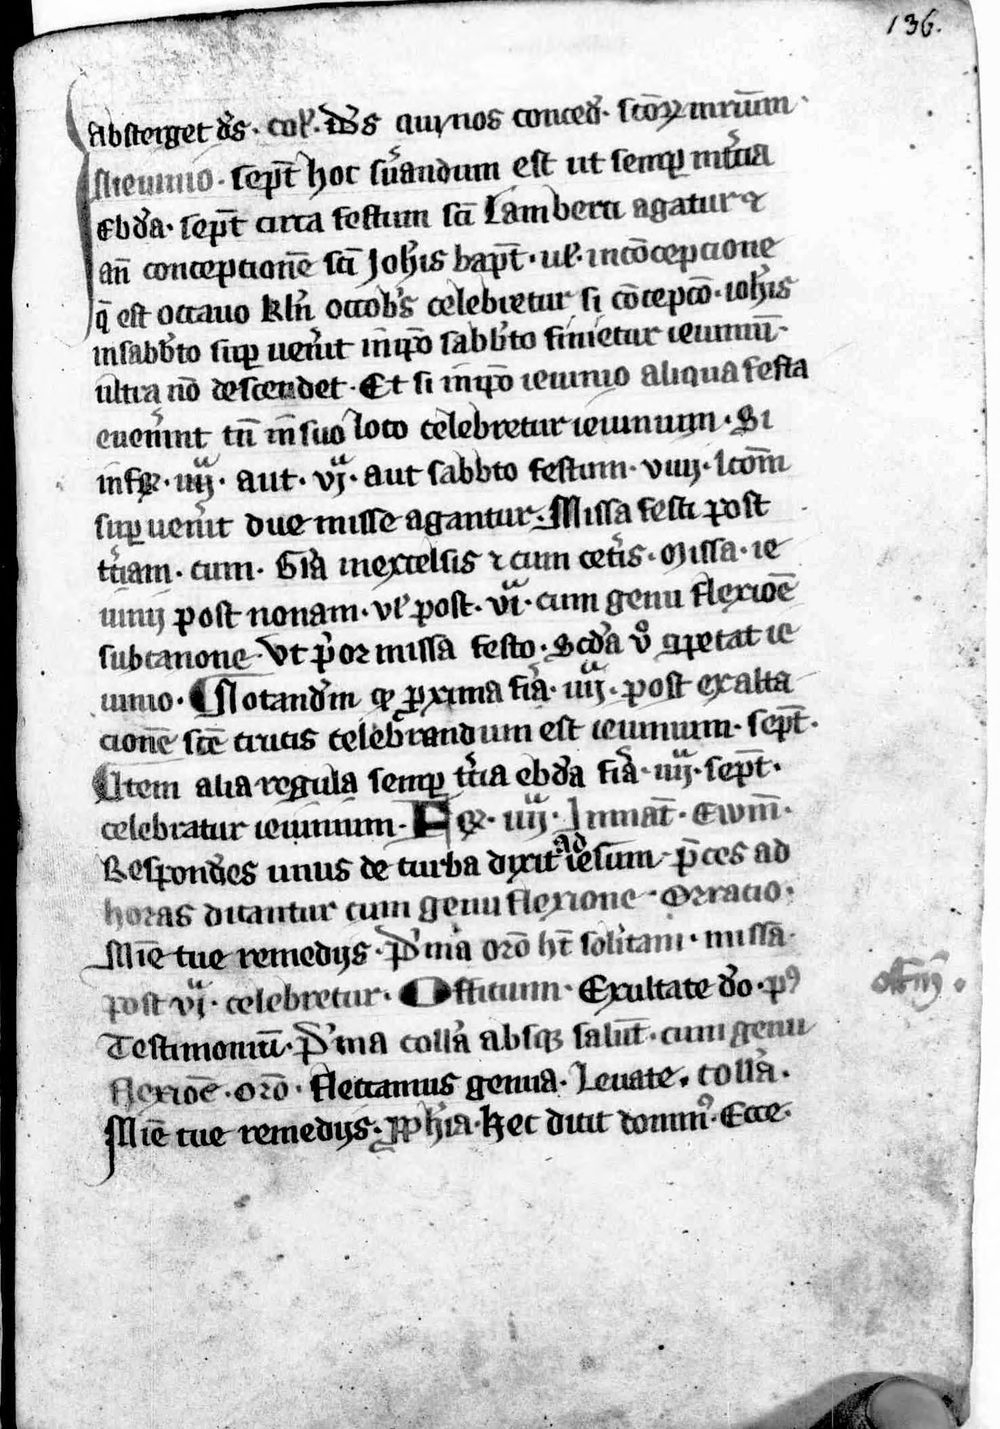 136.
Absterget ds̄. coł. Ds̄ qui nos conced̾. scōꝝ mr̄ium.
Ieiunio. sept̄ hoc sùandum est ut semꝑ in t̾cia
Ebda̾. sept̄ circa festum sc̄i Lamberti agatur ⁊
an̄ conceptionē sc̄i Joh̾is bapt̄. uł. in cōceptione
q̄ est octauo kłn octob̾s celebretur si cōcepcō. ioh̾is
in sabb̾to suꝑ uen̾it in ip̄o sabb̾to finietur ieiuniū.
ultra nō descendet. Et si in ip̄o ieiunio aliqua festa
euen̾int tn̄ in suo loco celebretur ieiunium. Si
in fer̾. iiij. aut. vj. aut sabbto festum. viiij. lcōm
suꝑ uen̾it due misse agantur. Missa festi post
t̾ciam. cum. Gl̾ia in excelsis ⁊ cum cet̾is. Missa. ie
iunij post nonam. vł post. vi. cum genu flexiōe
sub canone. Vt p̾or missa festo. Scd̾a v̊ ꝯpetat ie
iunio. Notand̾m ꝙ ꝓxima fia̾. iiij. post exalta
cionē scē crucis celebrandum est ieiunium. sept̄.
Item alia regula semꝑ t̾cia ebda̾ fia̾. iiij. sept̄.
celebratur ieiunium. Fer̾. iiij. Inuitat̄. Ewm̄.
Respondēs unus de turba dixit ad iesum p̄ces ad
horas dicantur cum genu flexione. Orracio.
Mīe tue remedijs. P̾ma orō ht̄ solitam. missā.
post vi. celebretur. Officium. Exultate do̾. pꝰ
Testimoniū. P̾ma colla̾ absqꝫ salut̄. cum genu
flexiōe. orō. flectamus genua. Leuate. colla̾.
Mīe tue remedijs. Pph̾ia. Hec dicit dominꝰ. Ecce.